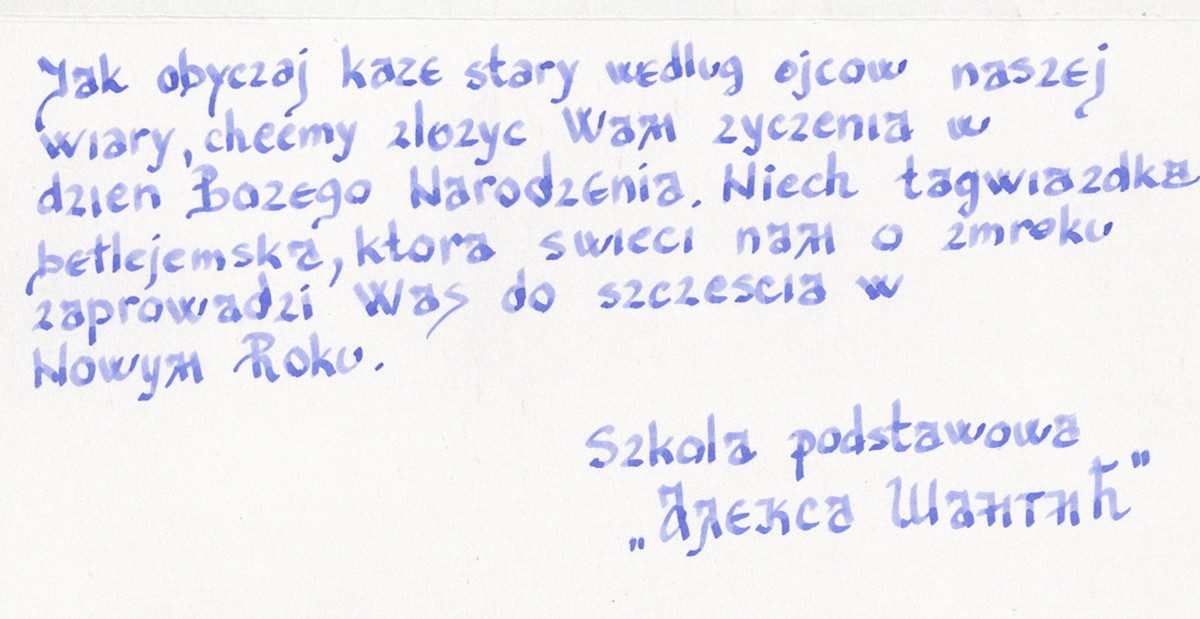 Jak obyczaj kaze stary według ojcow naszej
wiary, chcemy zlozyc Wam zyczenia w
dzien Bozego Narodzenia. Niech tagwiazdka
betlejemska, ktora swieci nam o zmroku
zaprowadzi Was do szczescia w
Nowym Roku.
Szkola podstawowa
„Алекса Шантић”